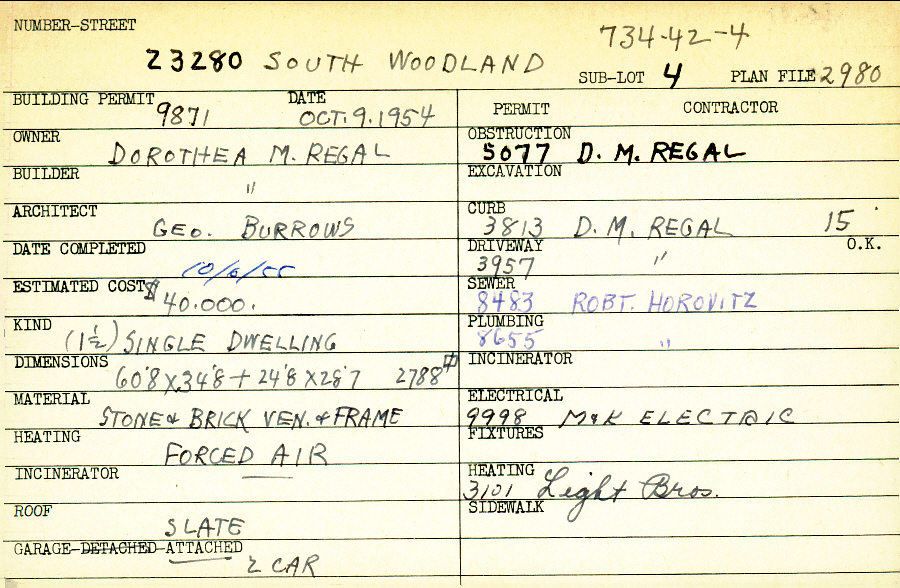 NUMBER-STREET
734-42-4
23280 SOUTH WOODLAND
SUB-LOT 4 PLAN FILE 2980
BUILDING PERMIT 9871 DATE OCT. 9. 1954
PERMIT CONTRACTOR
OWNER DOROTHEA M. REGAL
OBSTRUCTION 5077 D. M. REGAL
BUILDER "
EXCAVATION
ARCHITECT GEO. BURROWS
CURB 3813 D. M. REGAL 15
DATE COMPLETED 10/6/55
DRIVEWAY 3957 " O.K.
ESTIMATED COST $ 40.000.
SEWER 8483 ROBT. HOROVITZ
KIND (1½) SINGLE DWELLING
PLUMBING 8655 "
DIMENSIONS 60'8 X 34'8 + 24'8 X 28'7 2788
INCINERATOR
MATERIAL STONE & BRICK VEN. & FRAME
ELECTRICAL 9998 M&K ELECTRIC
HEATING FORCED AIR
FIXTURES
INCINERATOR —
HEATING 3101 Light Bros.
ROOF SLATE
SIDEWALK
GARAGE-DETACHED-ATTACHED 2 CAR